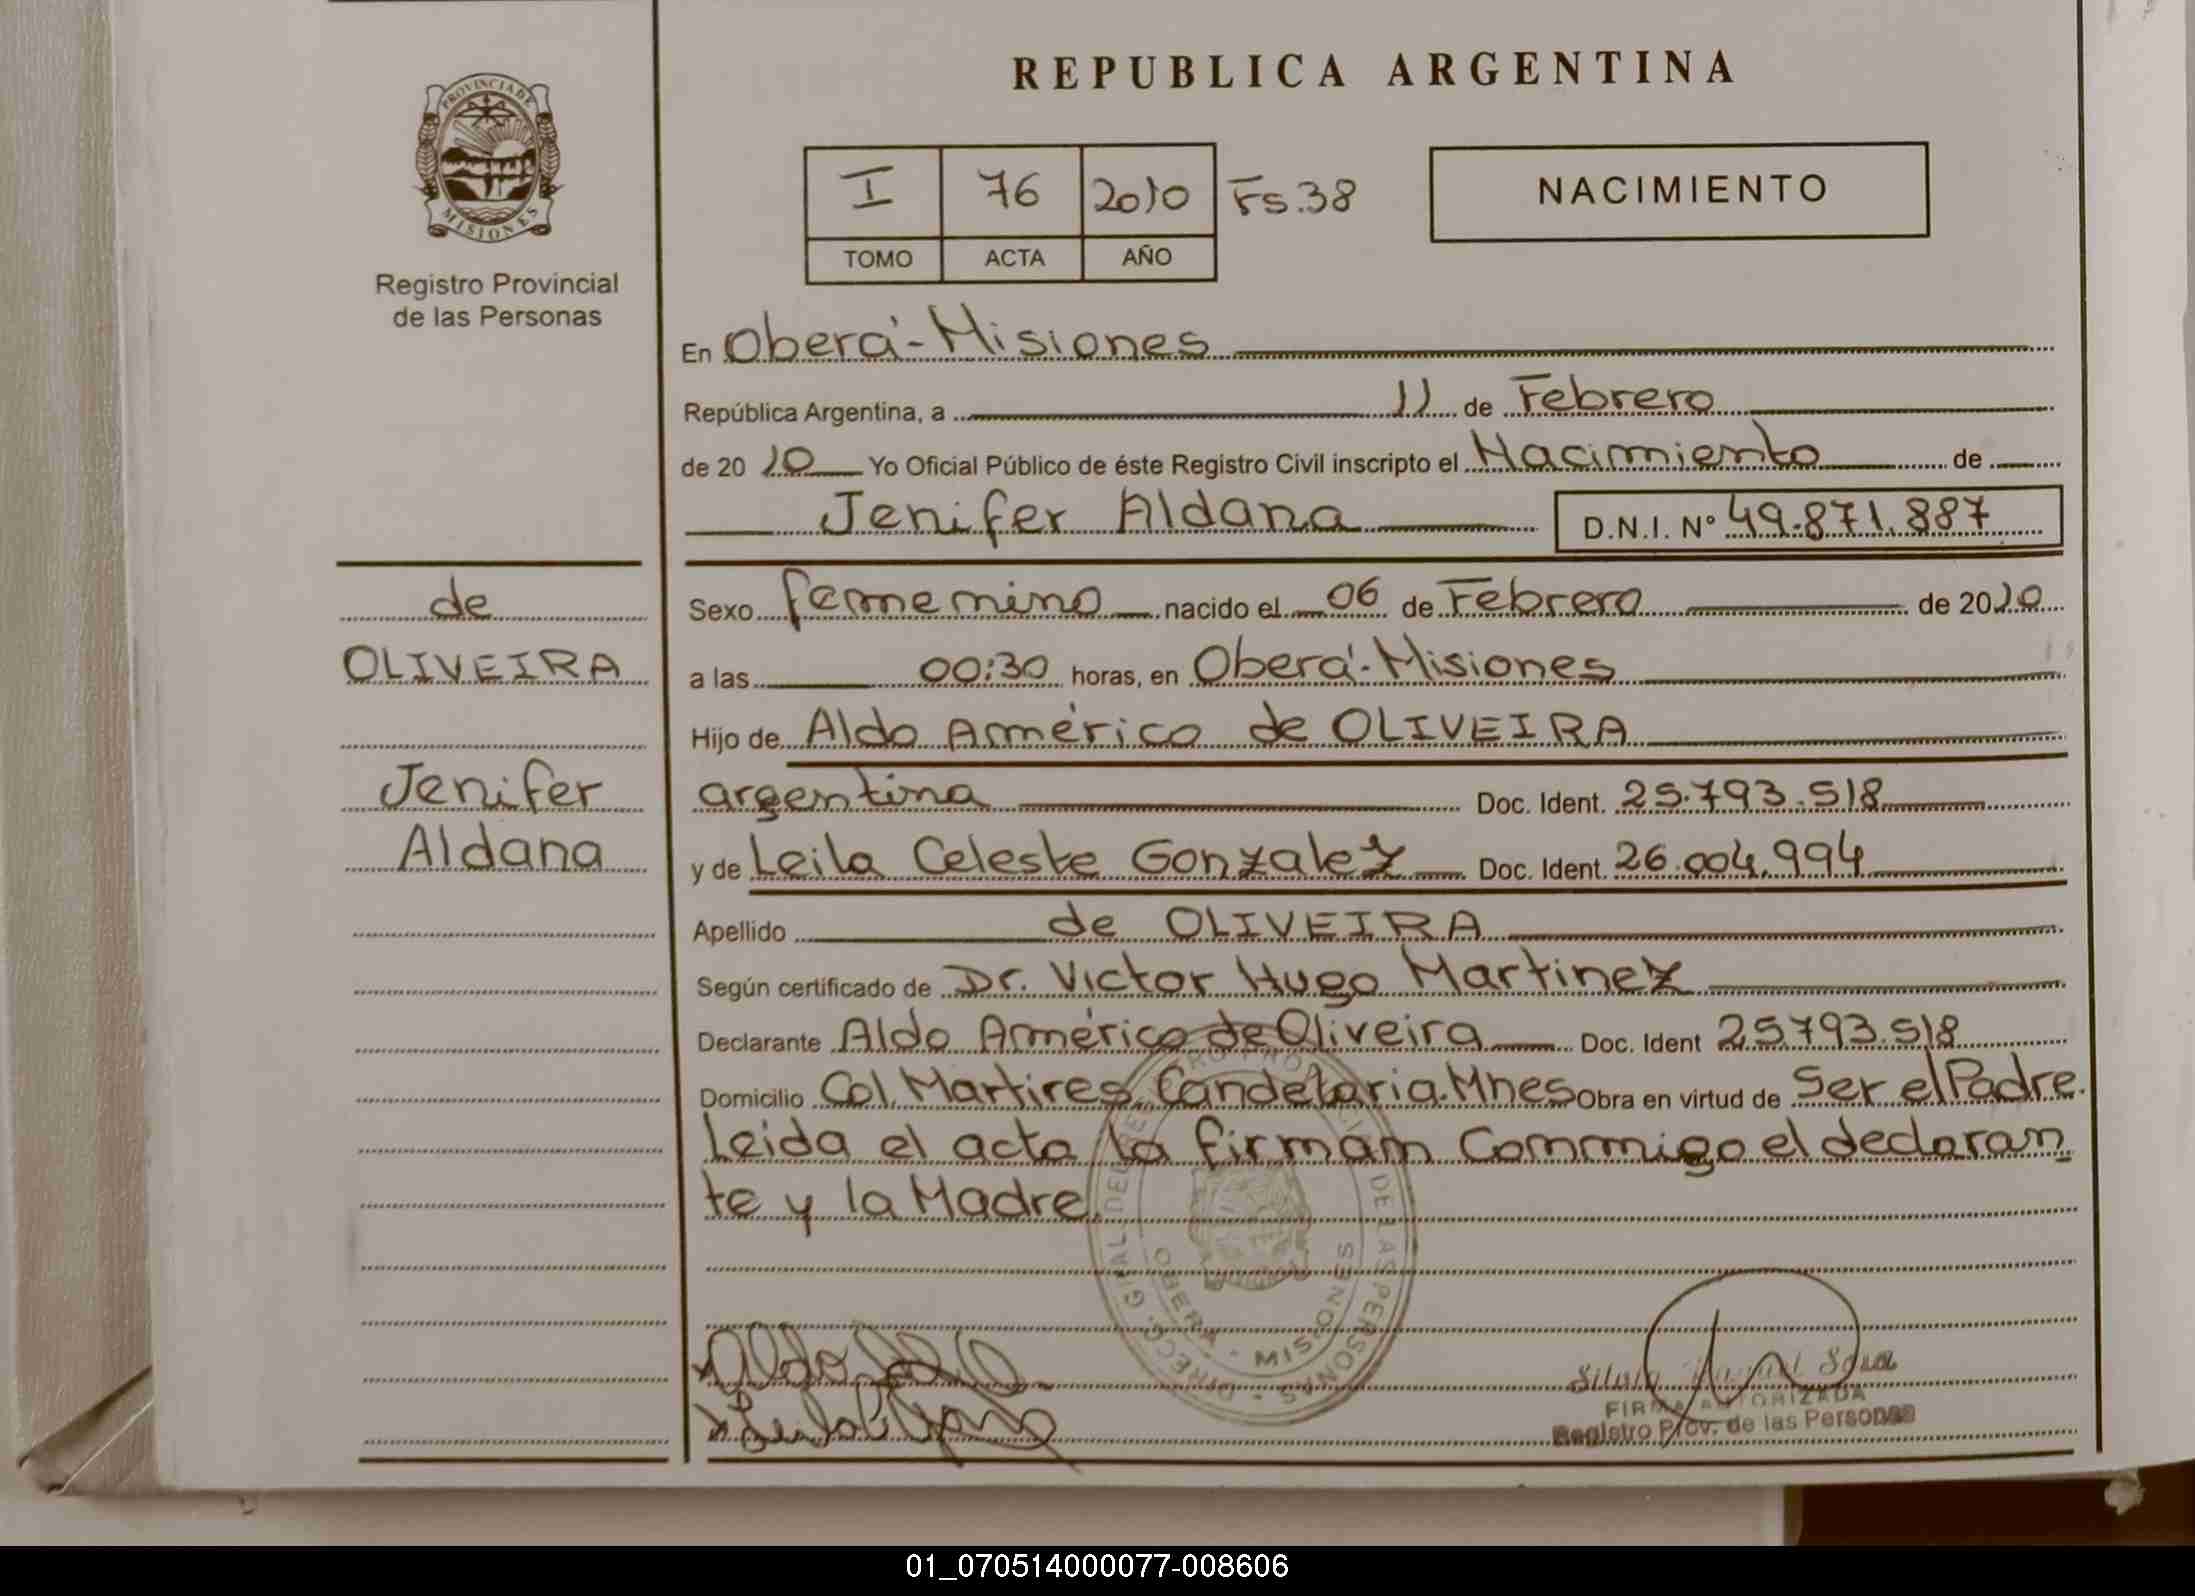 REPUBLICA ARGENTINA
PROVINCIA DE
MISIONES
Registro Provincial
de las Personas
I 76 2010 Fs.38
TOMO ACTA AÑO
NACIMIENTO
En Oberá-Misiones
República Argentina, a 11 de Febrero
de 2010 Yo Oficial Público de éste Registro Civil inscripto el Nacimiento de
Jenifer Aldana D.N.I. Nº 49.871.887
de
OLIVEIRA
Jenifer
Aldana
Sexo femenino nacido el 06 de Febrero de 2010
a las 00:30 horas, en Oberá-Misiones
Hijo de Aldo Américo de OLIVEIRA
argentina Doc. Ident. 25.793.518
y de Leila Celeste Gonzalez Doc. Ident. 26.004.994
Apellido de OLIVEIRA
Según certificado de Dr. Victor Hugo Martinez
Declarante Aldo Américo de Oliveira Doc. Ident 25793.518
Domicilio Col. Martires, Candelaria.Mnes Obra en virtud de Ser el Padre.
Leida el acta la firman Conmigo el declaran
te y la Madre.
DIRECC. GRAL. DEL REGISTRO PROVINCIAL DE LAS PERSONAS
OBERA - MISIONES
Sosa
FIRMA AUTORIZADA
Registro Prov. de las Personas
01_070514000077-008606